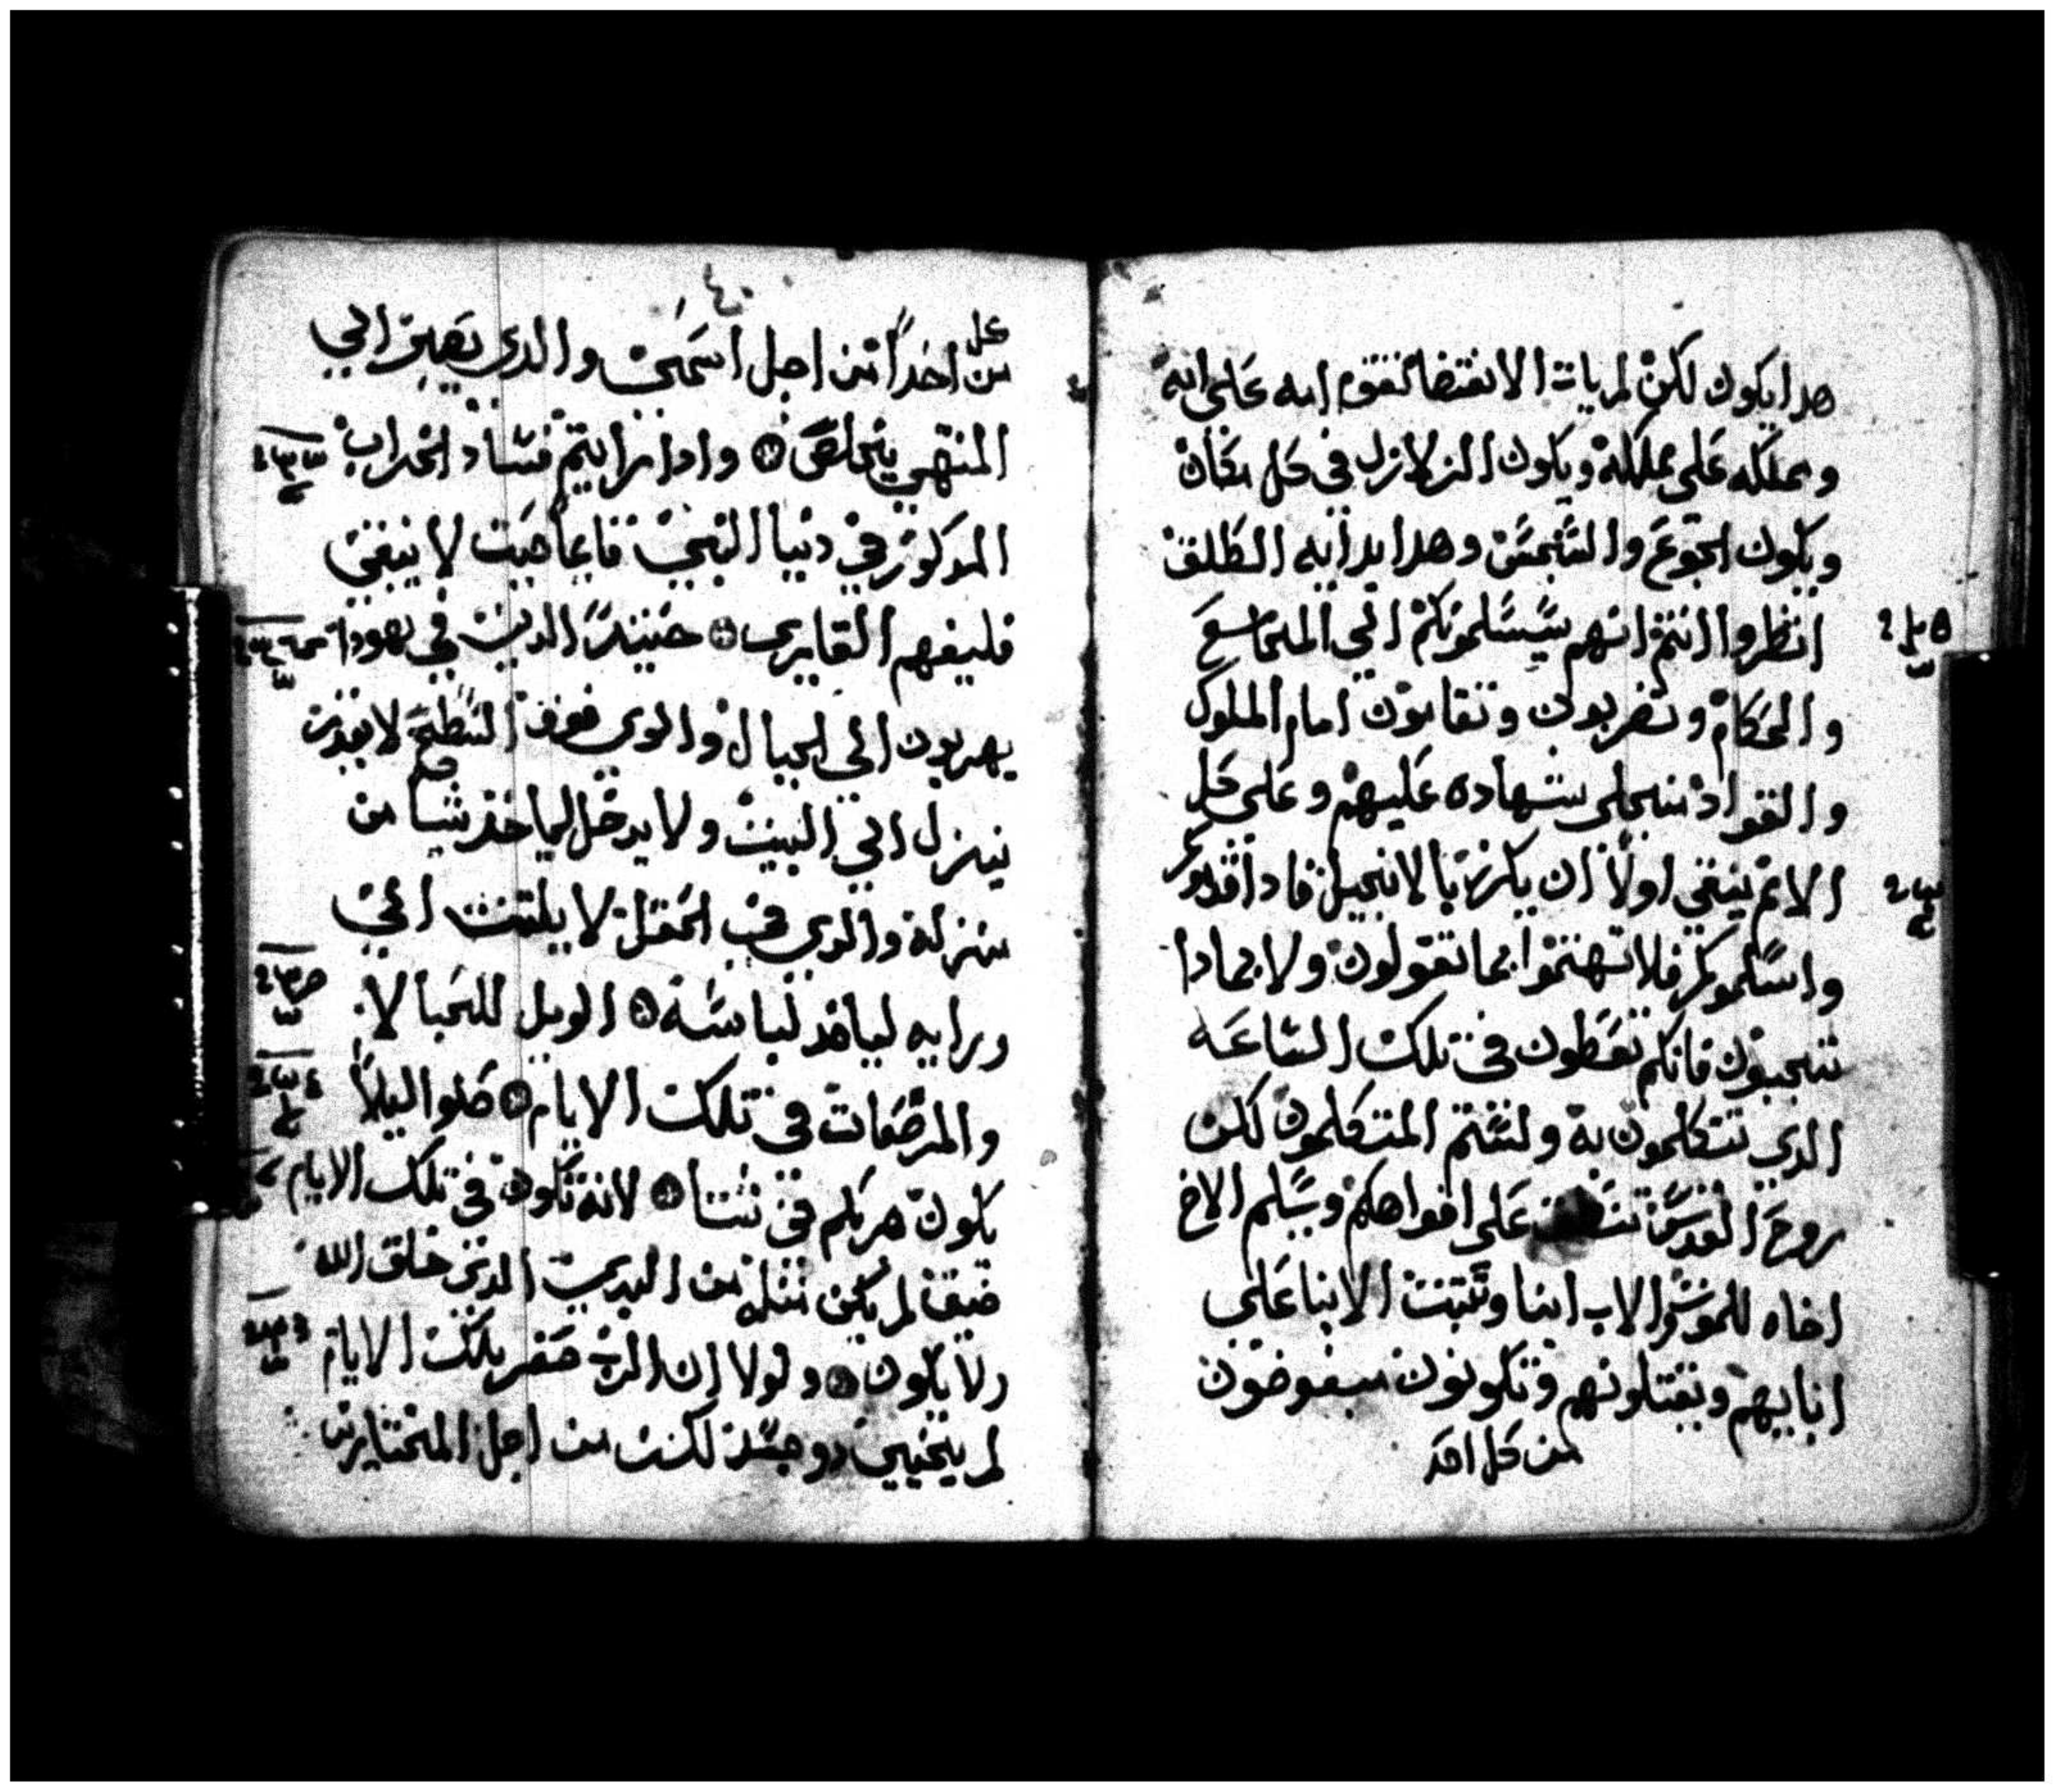 هدا يكون لكن لم يات الانقضا تقوم امه على امه
ومملكه على مملكة ويكون الزلازل في كل مكان
ويكون الجوع والتجسس وهدا بداية الطلق
انظروا انتم انهم سيسلمونكم الي المجامع
والحكام وتضربون وتقامون امام الملوك
والقواد من اجلي شهاده عليهم وعلى كل
الامم ينبغي اولا ان يكرز بالانجيل فادا قدموكم
واسلموكم فلا تهتموا بما تقولون ولا بمادا
تجيبون فانكم تعطون في تلك الساعه
الدي تتكلمون به ولستم المتكلمون لكن
روح القدس على افواهكم وسيلم الاخ
اخاه للموت والاب ابنا وتثبت الابنا على
ابابيهم ويقتلونهم وتكونون مبغوضون
من كل احد
٤٠
كل
من احدا من اجل اسمي والدي يصبر الي
المنتهي يخلص وادا رايتم فساد الخراب
المدكور في دنيا النبي قايما حيت لا ينبغي
فليفهم القاري حينيد الدين في يهودا
يهربون الي الجبال والدي فوق السطح لا يقدر
ينزل الي البيت ولا يدخل لياخد شيا من
منزله والدي في الحقل لا يلتفت الي
ورايه لياخد لباسه الويل للحبالا
والمرضعات في تلك الايام صلوا ليلا
يكون هربكم في شتا لانه تكون في تلك الايام
ضيق لم يكن مثله من البدي الدي خلق الله
ولا يكون ولولا ان الرب صغر تلك الايام
لم يحيي دو جسد لكن من اجل المختارين